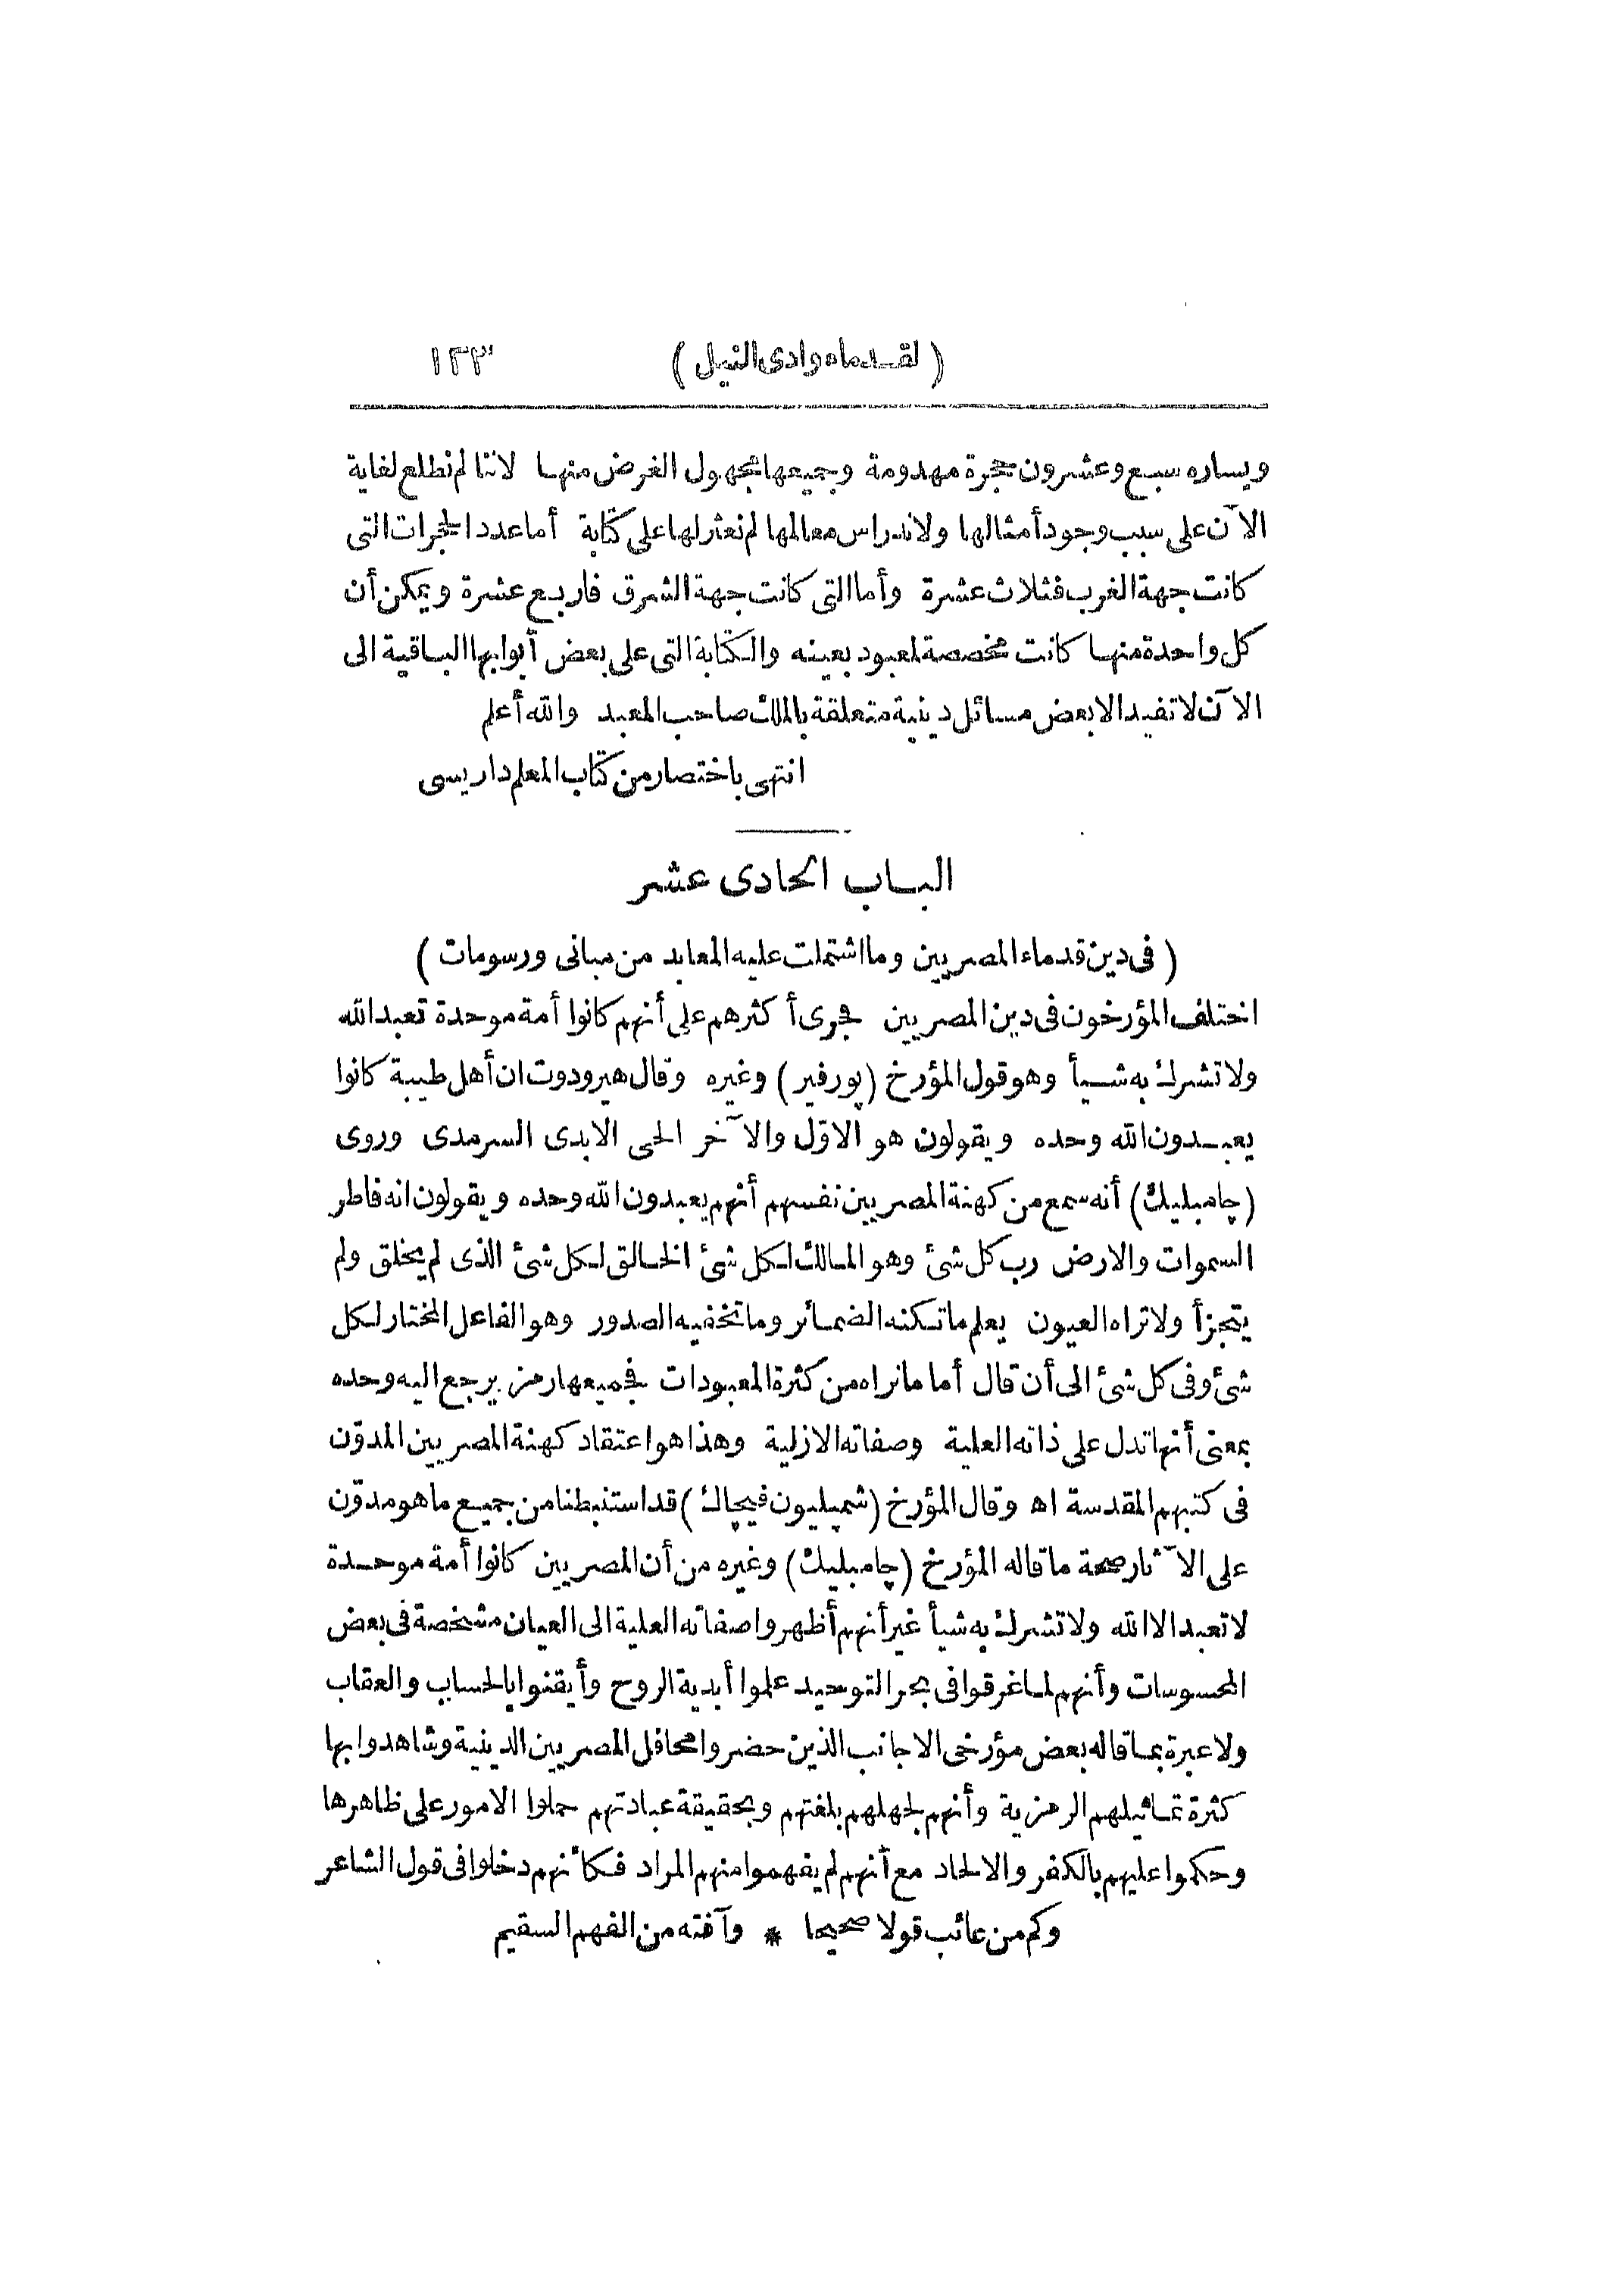 (لقدماء وادى النيل) ١٢٣
ويساره سبع وعشرون حجرة مهدومة وجميعها مجهول الغرض منها لاننا لم نطلع لغاية
الآن على سبب وجود أمثالها ولاندراس معالمها لم نعثر لها على كتابة أما عدد الحجرات التى
كانت جهة الغرب فثلاث عشرة وأما التى كانت جهة الشرق فاربع عشرة ويمكن أن
كل واحدة منها كانت مخصصة لمعبود بعينه والكتابة التى على بعض أبوابها الباقية الى
الآن لا تفيد الا بعض مسائل دينية متعلقة بالملك صاحب المعبد والله أعلم
انتهى باختصار من كتاب المعلم داريسى
الباب الحادى عشر
(فى دين قدماء المصريين وما اشتملت عليه المعابد من مبانى ورسومات)
اختلف المؤرخون فى دين المصريين فجرى أكثرهم على أنهم كانوا أمة موحدة تعبد الله
ولا تشرك به شيأ وهو قول المؤرخ (پورفير) وغيره وقال هيرودوت ان أهل طيبة كانوا
يعبدون الله وحده ويقولون هو الاوّل والآخر الحى الابدى السرمدى وروى
(چامبليك) أنه سمع من كهنة المصريين نفسهم أنهم يعبدون الله وحده ويقولون انه فاطر
السموات والارض رب كل شئ وهو المالك لكل شئ الخالق لكل شئ الذى لم يخلق ولم
يتجزأ ولا تراه العيون يعلم ما تكنه الضمائر وما تخفيه الصدور وهو الفاعل المختار لكل
شئ وفى كل شئ الى أن قال أما ما نراه من كثرة المعبودات فجميعها رمز يرجع اليه وحده
بمعنى أنها تدل على ذاته العلية وصفاته الازلية وهذا هو اعتقاد كهنة المصريين المدوّن
فى كتبهم المقدسة اه وقال المؤرخ (شمپليون فيچاك) قد استنبطنا من جميع ما هو مدوّن
على الآثار صحة ما قاله المؤرخ (چامبليك) وغيره من أن المصريين كانوا أمة موحدة
لا تعبد الا الله ولا تشرك به شيأ غير أنهم أظهروا صفاته العلية الى العيان مشخصة فى بعض
المحسوسات وأنهم لما غرقوا فى بحر التوحيد علموا أبدية الروح وأيقنوا بالحساب والعقاب
ولا عبرة بما قاله بعض مؤرخى الاجانب الذين حضروا محافل المصريين الدينية وشاهدوا بها
كثرة تماثيلهم الرمزية وأنهم لجهلهم بلغتهم وبحقيقة عبادتهم حملوا الامور على ظاهرها
وحكموا عليهم بالكفر والالحاد مع أنهم لم يفهموا منهم المراد فكأنهم دخلوا فى قول الشاعر
وكم من عائب قولا صحيحا * وآفته من الفهم السقيم